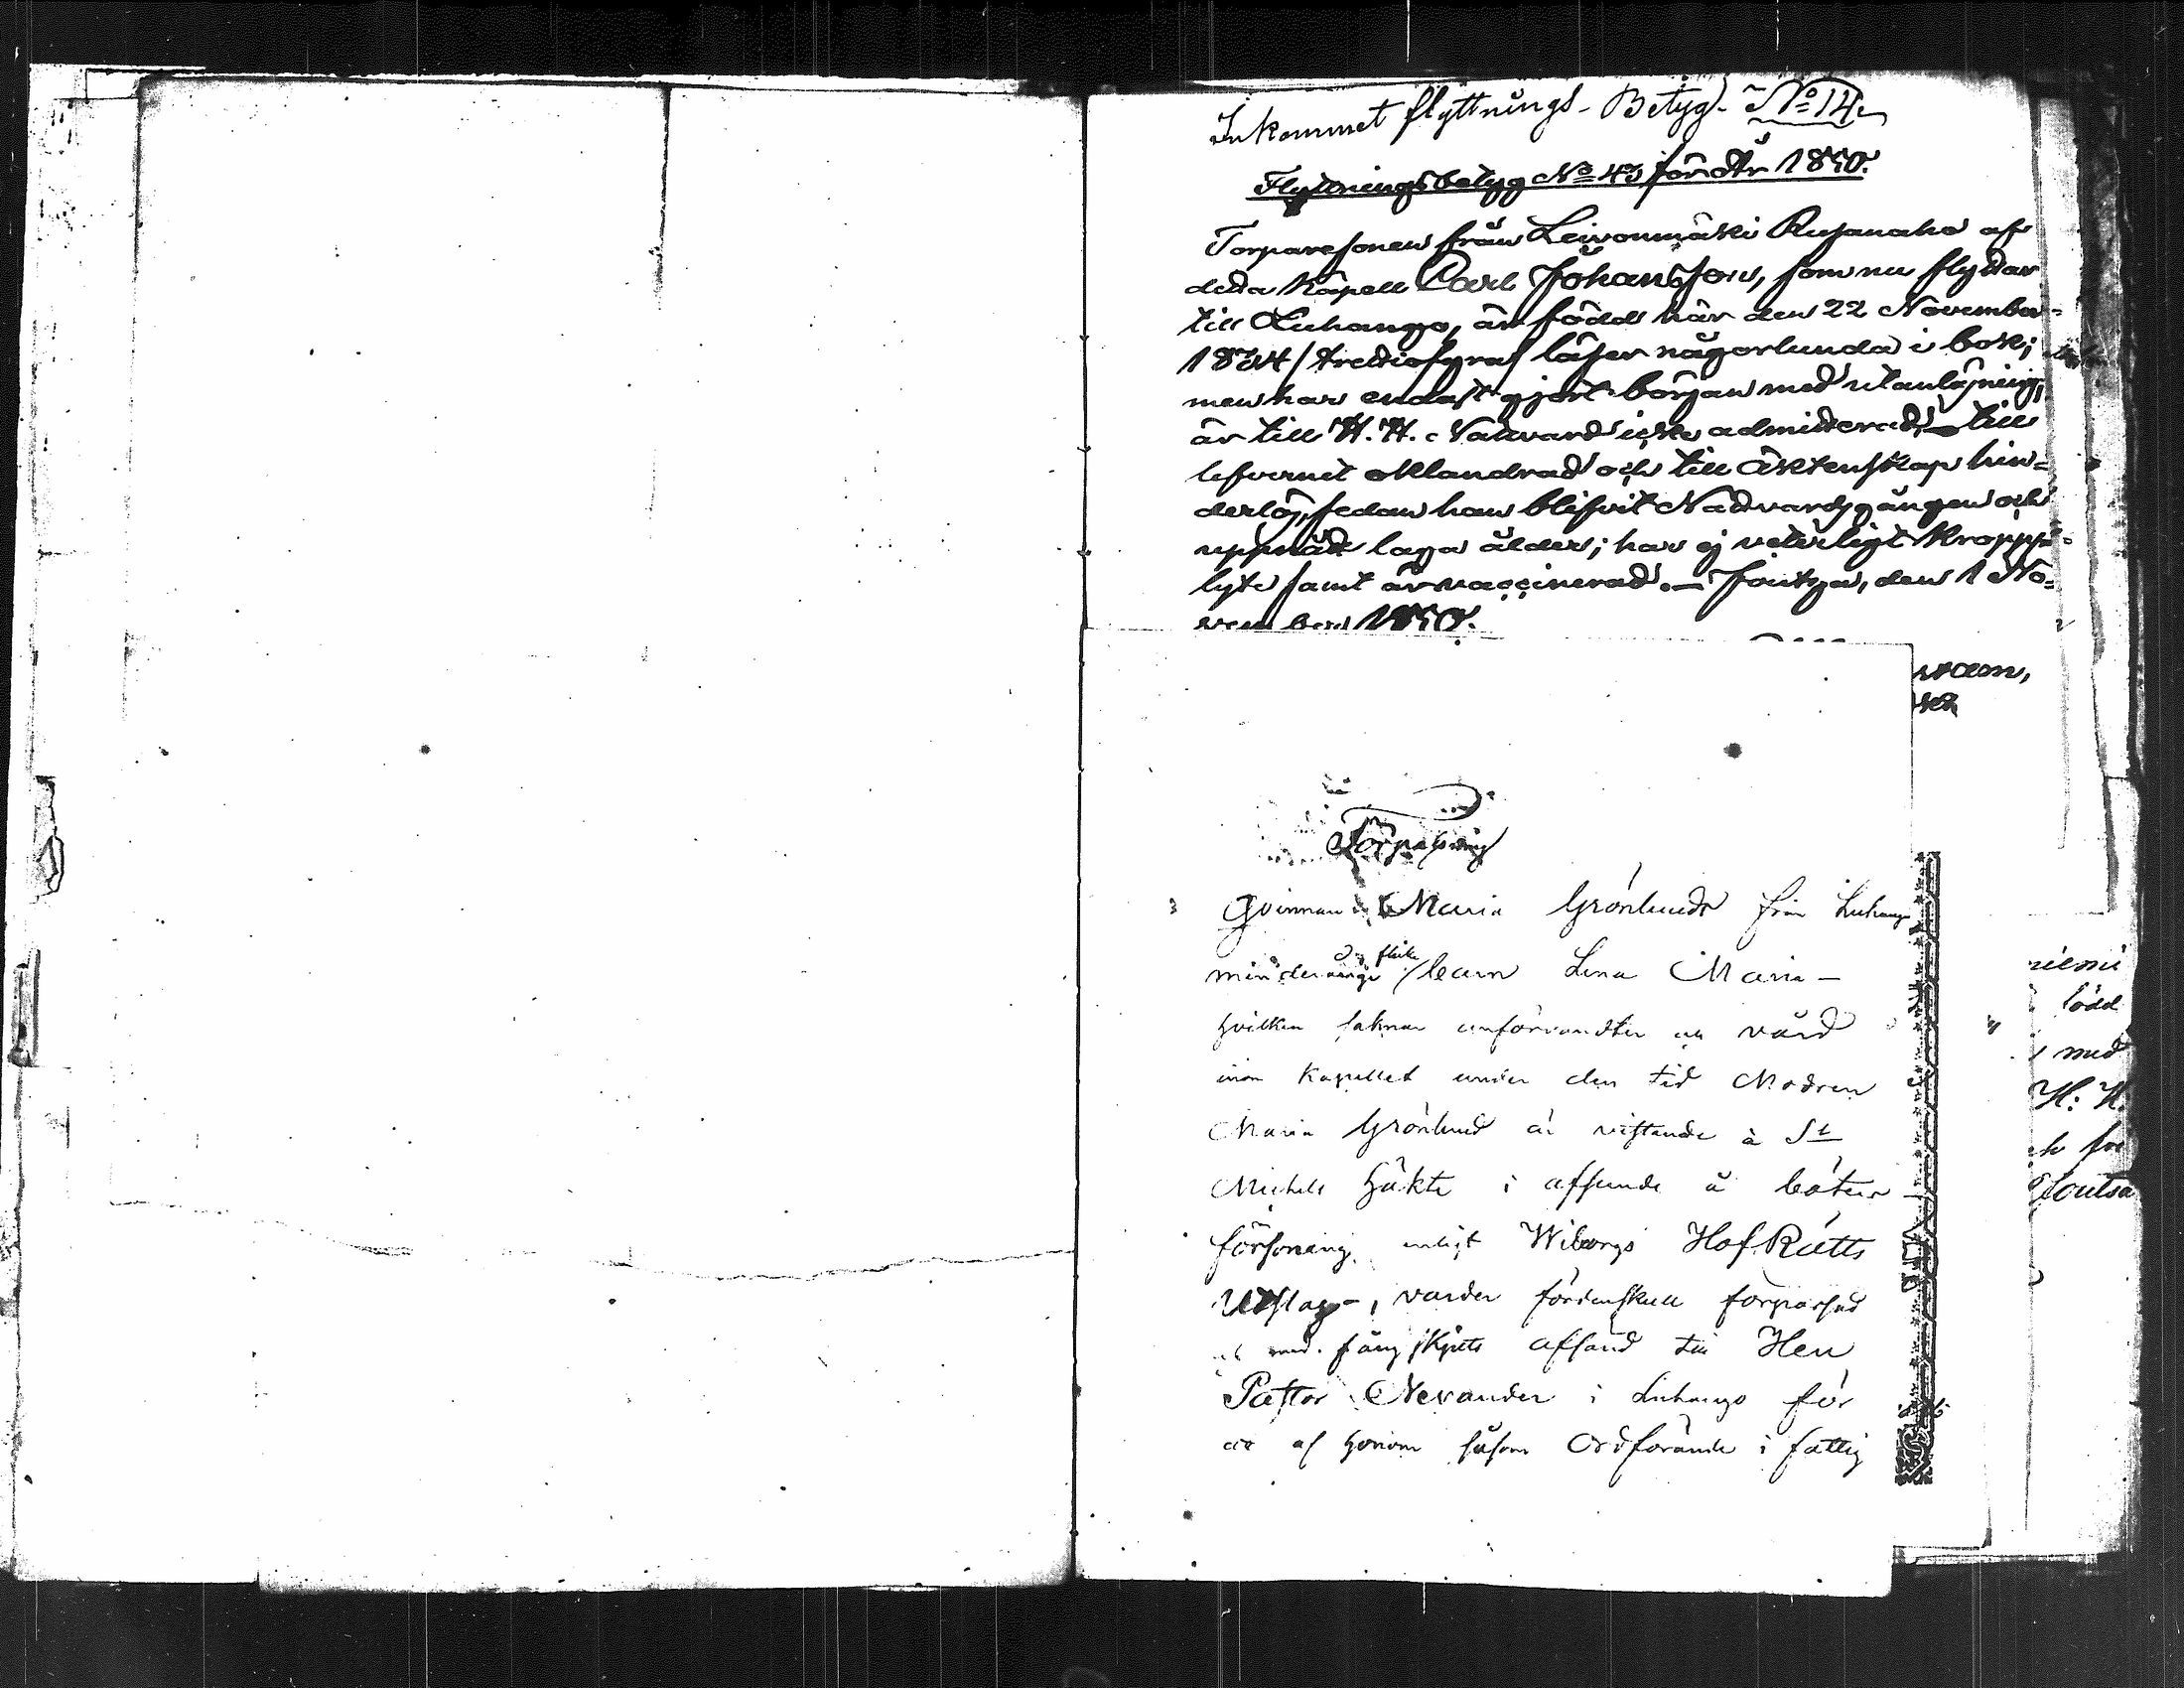 Inkommet flyttnings-Betyg No 14.
Flyttningsbetyg No 43 för år 1850.
Torparesonen från Leivonmäki Rusanaho af
detta Kapell Carl Johansson, som nu flyttar
till Luhango, är född här den 22 November
1834 /trettiofyra/ läser någorlunda i bok;
men har endast gjort början med utanläsning;
är till H. H. Nattvard icke admitterad, till
lefvernet oklandrad och till äktenskap hin=
derlös, sedan han blifvit Nattvardsgången och
uppnått laga ålder; har ej veterligt kropps=
lyte samt är vaccinerad. — Joutsa, den 1 No=
vember 1850.
Förpassning
Qvinnan Maria Grönlunds från Luhango
minderåriga barn Lena Maria —
hvilken saknar anförvandter och vård
inom Kapellet under den tid Modren
Maria Grönlund är vistande å St
Michels häkte i afseende å böters
försoning enligt Wiborgs HofRätts
Utslag —, varder fördenskull förpassad
och med fångskjuts afsänd till Herr
Pastor Nevander i Luhango för
att af honom såsom Ordförande i fattig
niemi
född
med
H: H.
Joutsa